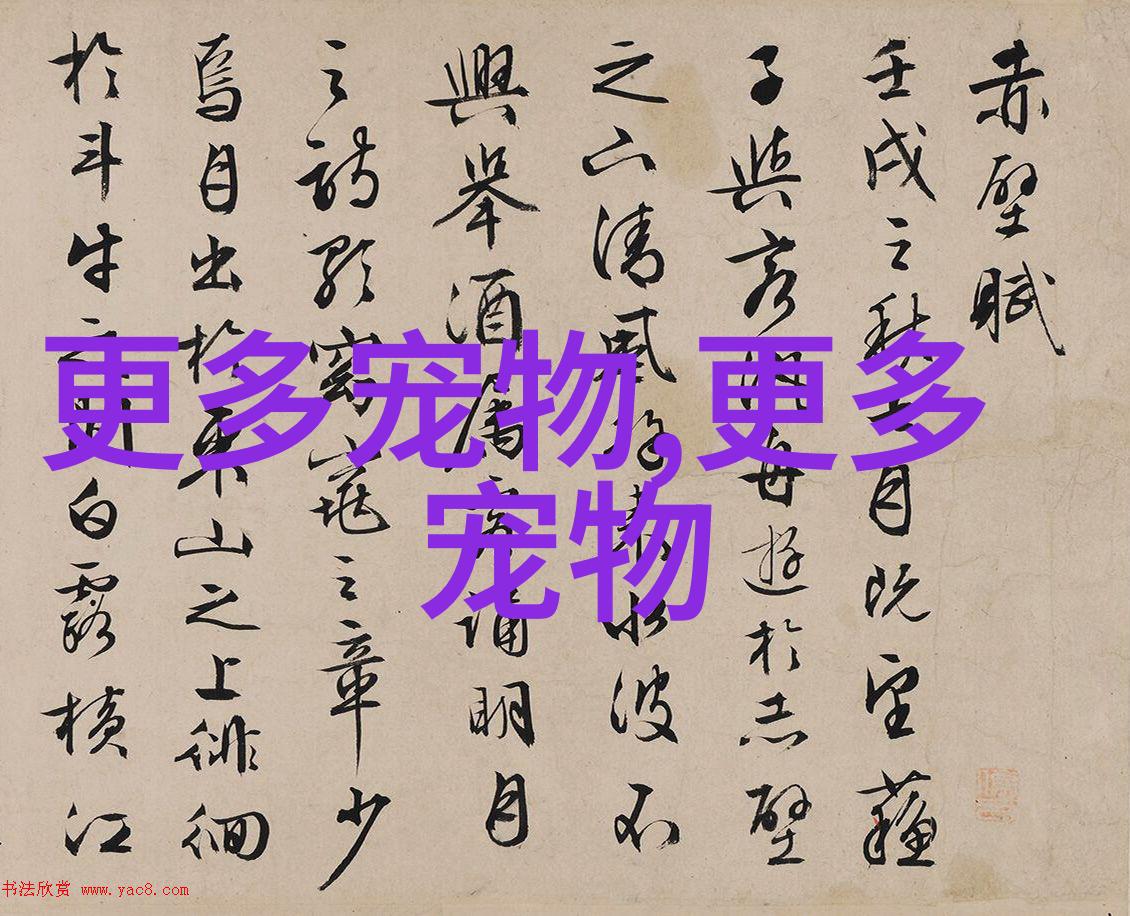 赤壁賦
壬戌之秋七月既望蘇
子與客泛舟遊於赤壁
之下清風徐來水波不
興舉酒屬客誦明月
之詩歌窈窕之章少
焉月出於東山之上徘徊
於斗牛之間白露橫江
更多宠物,更多
宠物
书法欣赏 www.yac8.com